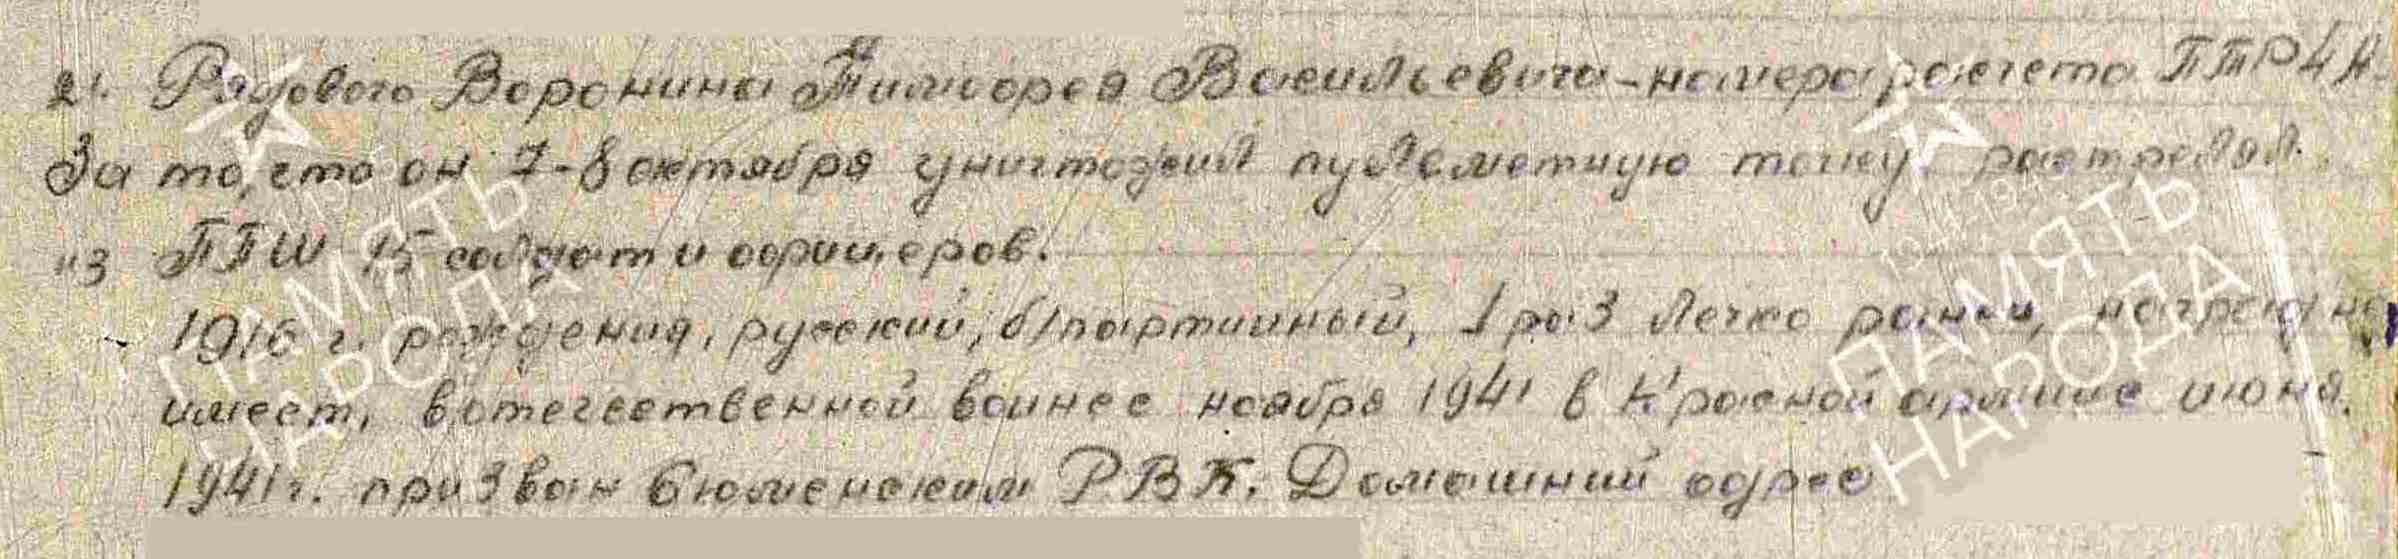 21. Рядового Воронина Тимофея Васильевича - номера расчета ПТР
За то, что он 7-8 октября уничтожил пулеметную точку расстрелял
из ППШ 15 солдат и офицеров.
1916 г. рождения, русский, б/партийный, 1 раз легко ранен, наград не
имеет, в отечественной воинее ноября 1941 в Красной армиие июня
1941 г. призван РВК. Домашний адрес
ПАМЯТЬ
НАРОДА
ПАМЯТЬ
НАРОДА